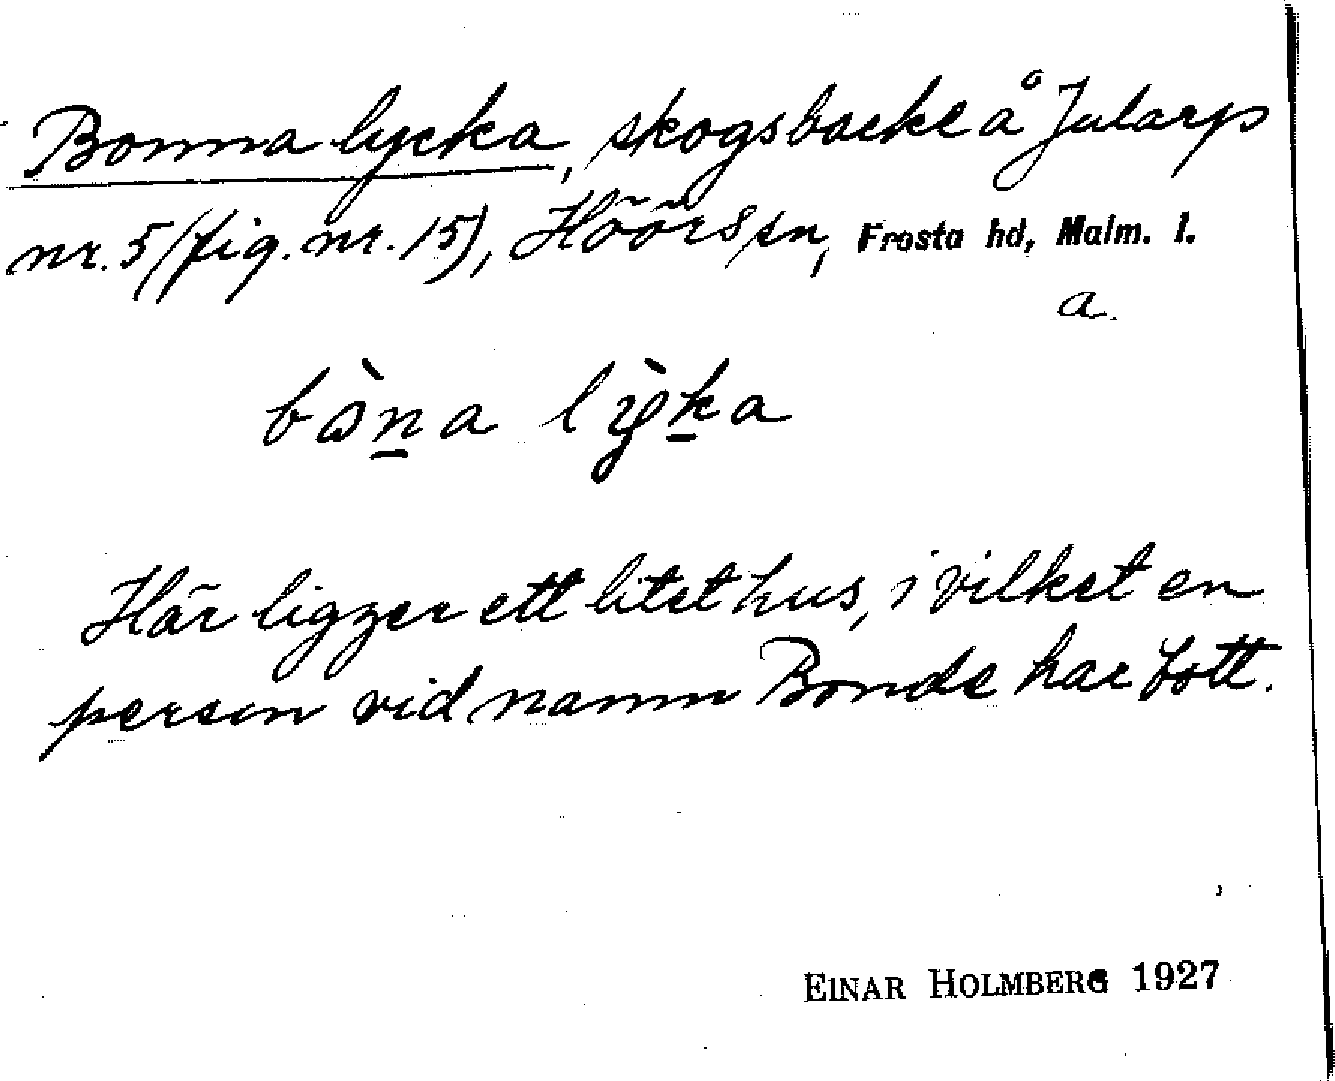 Bonna lycka, skogsbacke å Jularp
nr. 5 (fig. nr. 15), Höörs sn, Frosta hd, Malm. l.
a.
bòna lỳka
Här ligger ett litet hus, i vilket en
person vid namn Bonde har bott.
EINAR HOLMBERG 1927